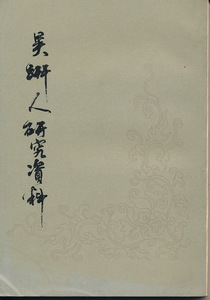 吴趼人研究資料